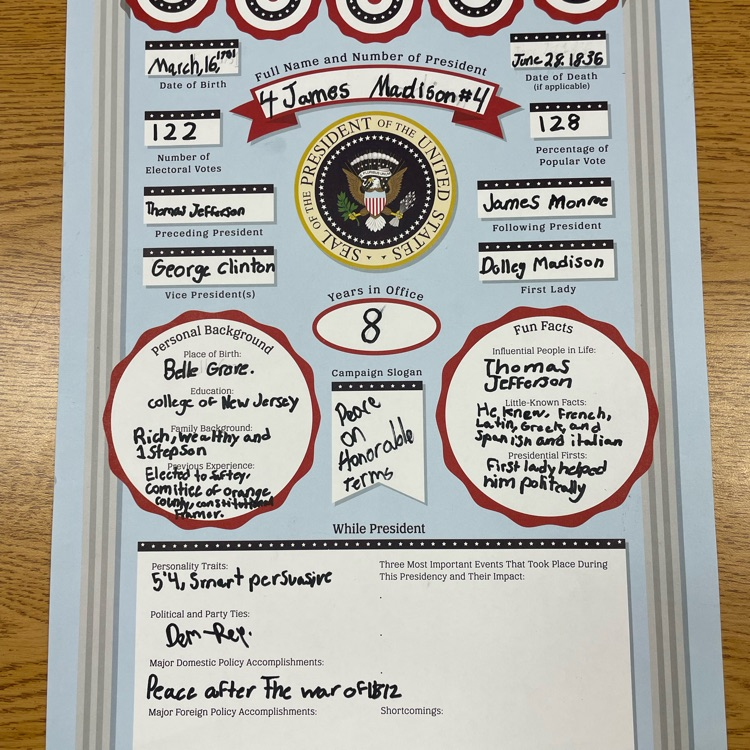 March, 16, 1751
Date of Birth
Full Name and Number of President
4 James Madison #4
June 28. 1836
Date of Death
(if applicable)
122
Number of
Electoral Votes
SEAL OF THE PRESIDENT OF THE UNITED STATES
128
Percentage of
Popular Vote
Thomas Jefferson
Preceding President
James Monroe
Following President
George Clinton
Vice President(s)
Dolley Madison
First Lady
Years in Office
8
Personal Background
Place of Birth:
Belle Grove.
Education:
college of New Jersey
Family Background:
Rich, wealthy and
1 Stepson
Previous Experience:
Elected to
Comities of orange
county, constitutional
Framor.
Campaign Slogan
Peace
on
Honorable
terms
Fun Facts
Influential People in Life:
Thomas
Jefferson
Little-Known Facts:
He knew. French,
Latin, Greek, and
Spanish and italian
Presidential Firsts:
First lady helped
him politically
While President
Personality Traits:
5'4, Smart persuasive
Political and Party Ties:
Dem-Rep.
Major Domestic Policy Accomplishments:
Peace after The war of 1812
Major Foreign Policy Accomplishments:
Three Most Important Events That Took Place During
This Presidency and Their Impact:
Shortcomings: